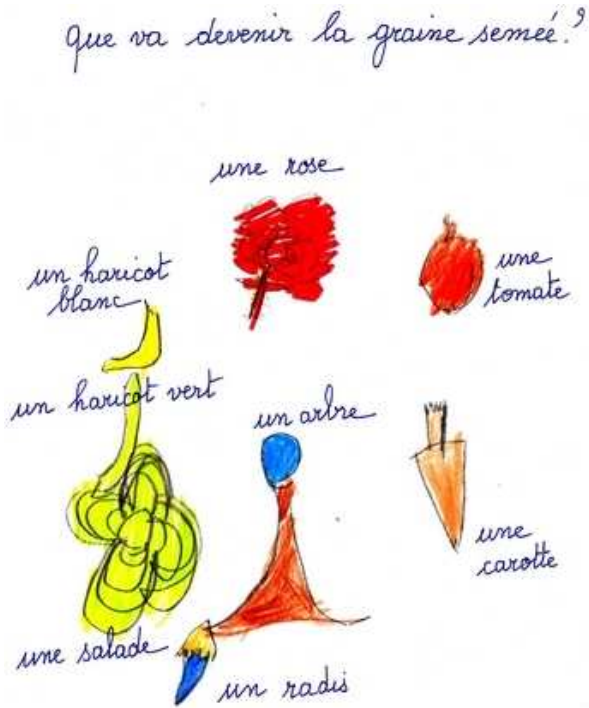 que va devenir la graine semée?
une rose
un haricot
blanc
une
tomate
un haricot vert
un arbre
une
carotte
une salade
un radis